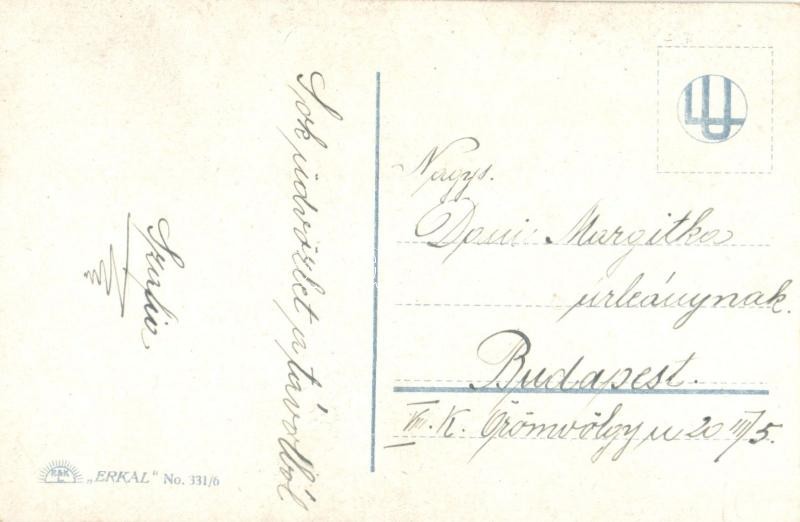 Sok üdvözlet a távolból
Nagys.
Dani Margitka
urleánynak.
Budapest.
VIII. K. Örömvölgy u 20 III/5.
R&K
L.
„ERKAL" No. 331/6